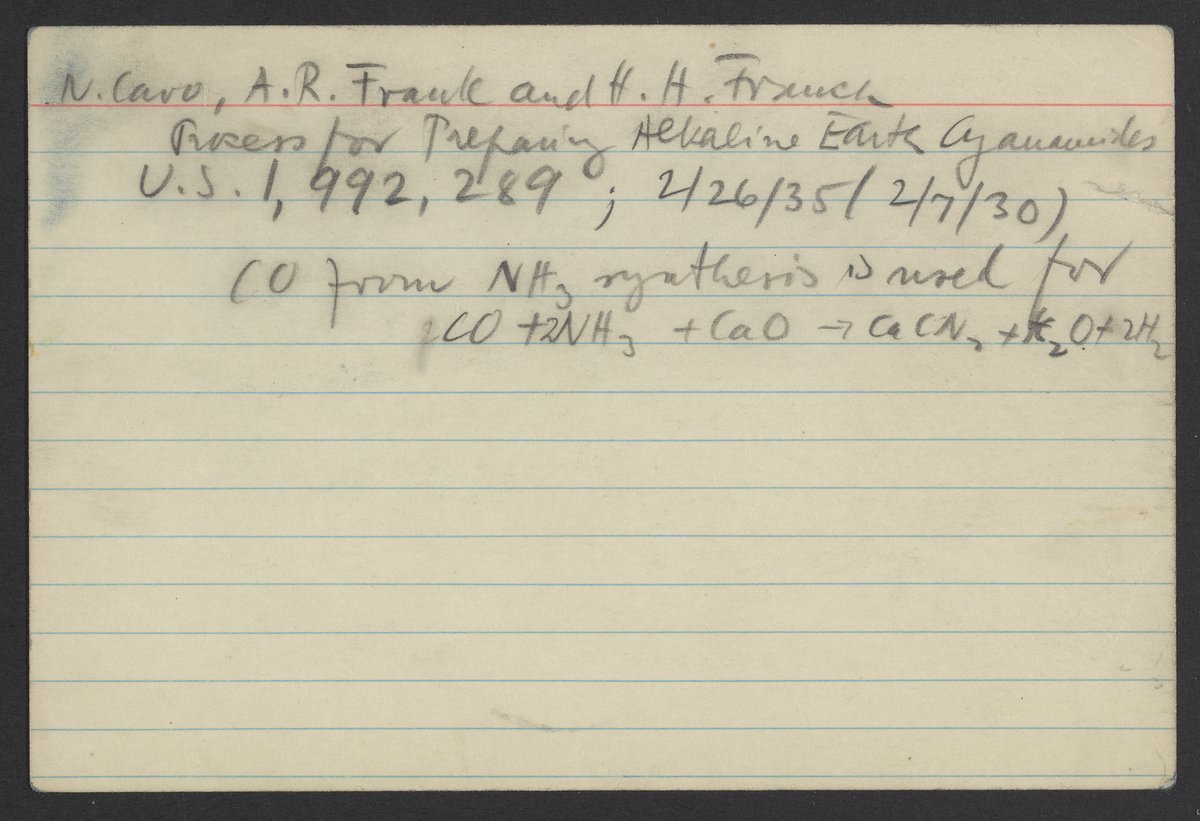 N. Caro, A.R. Frank and H. H. Franck
Process for Preparing Alkaline Earth Cyanamides
U.S. 1,992,289 ; 2/26/35 ( 2/7/30)
CO from NH3 synthesis is used for
CO + 2NH3 + CaO → CaCN2 + H2O + 2H2